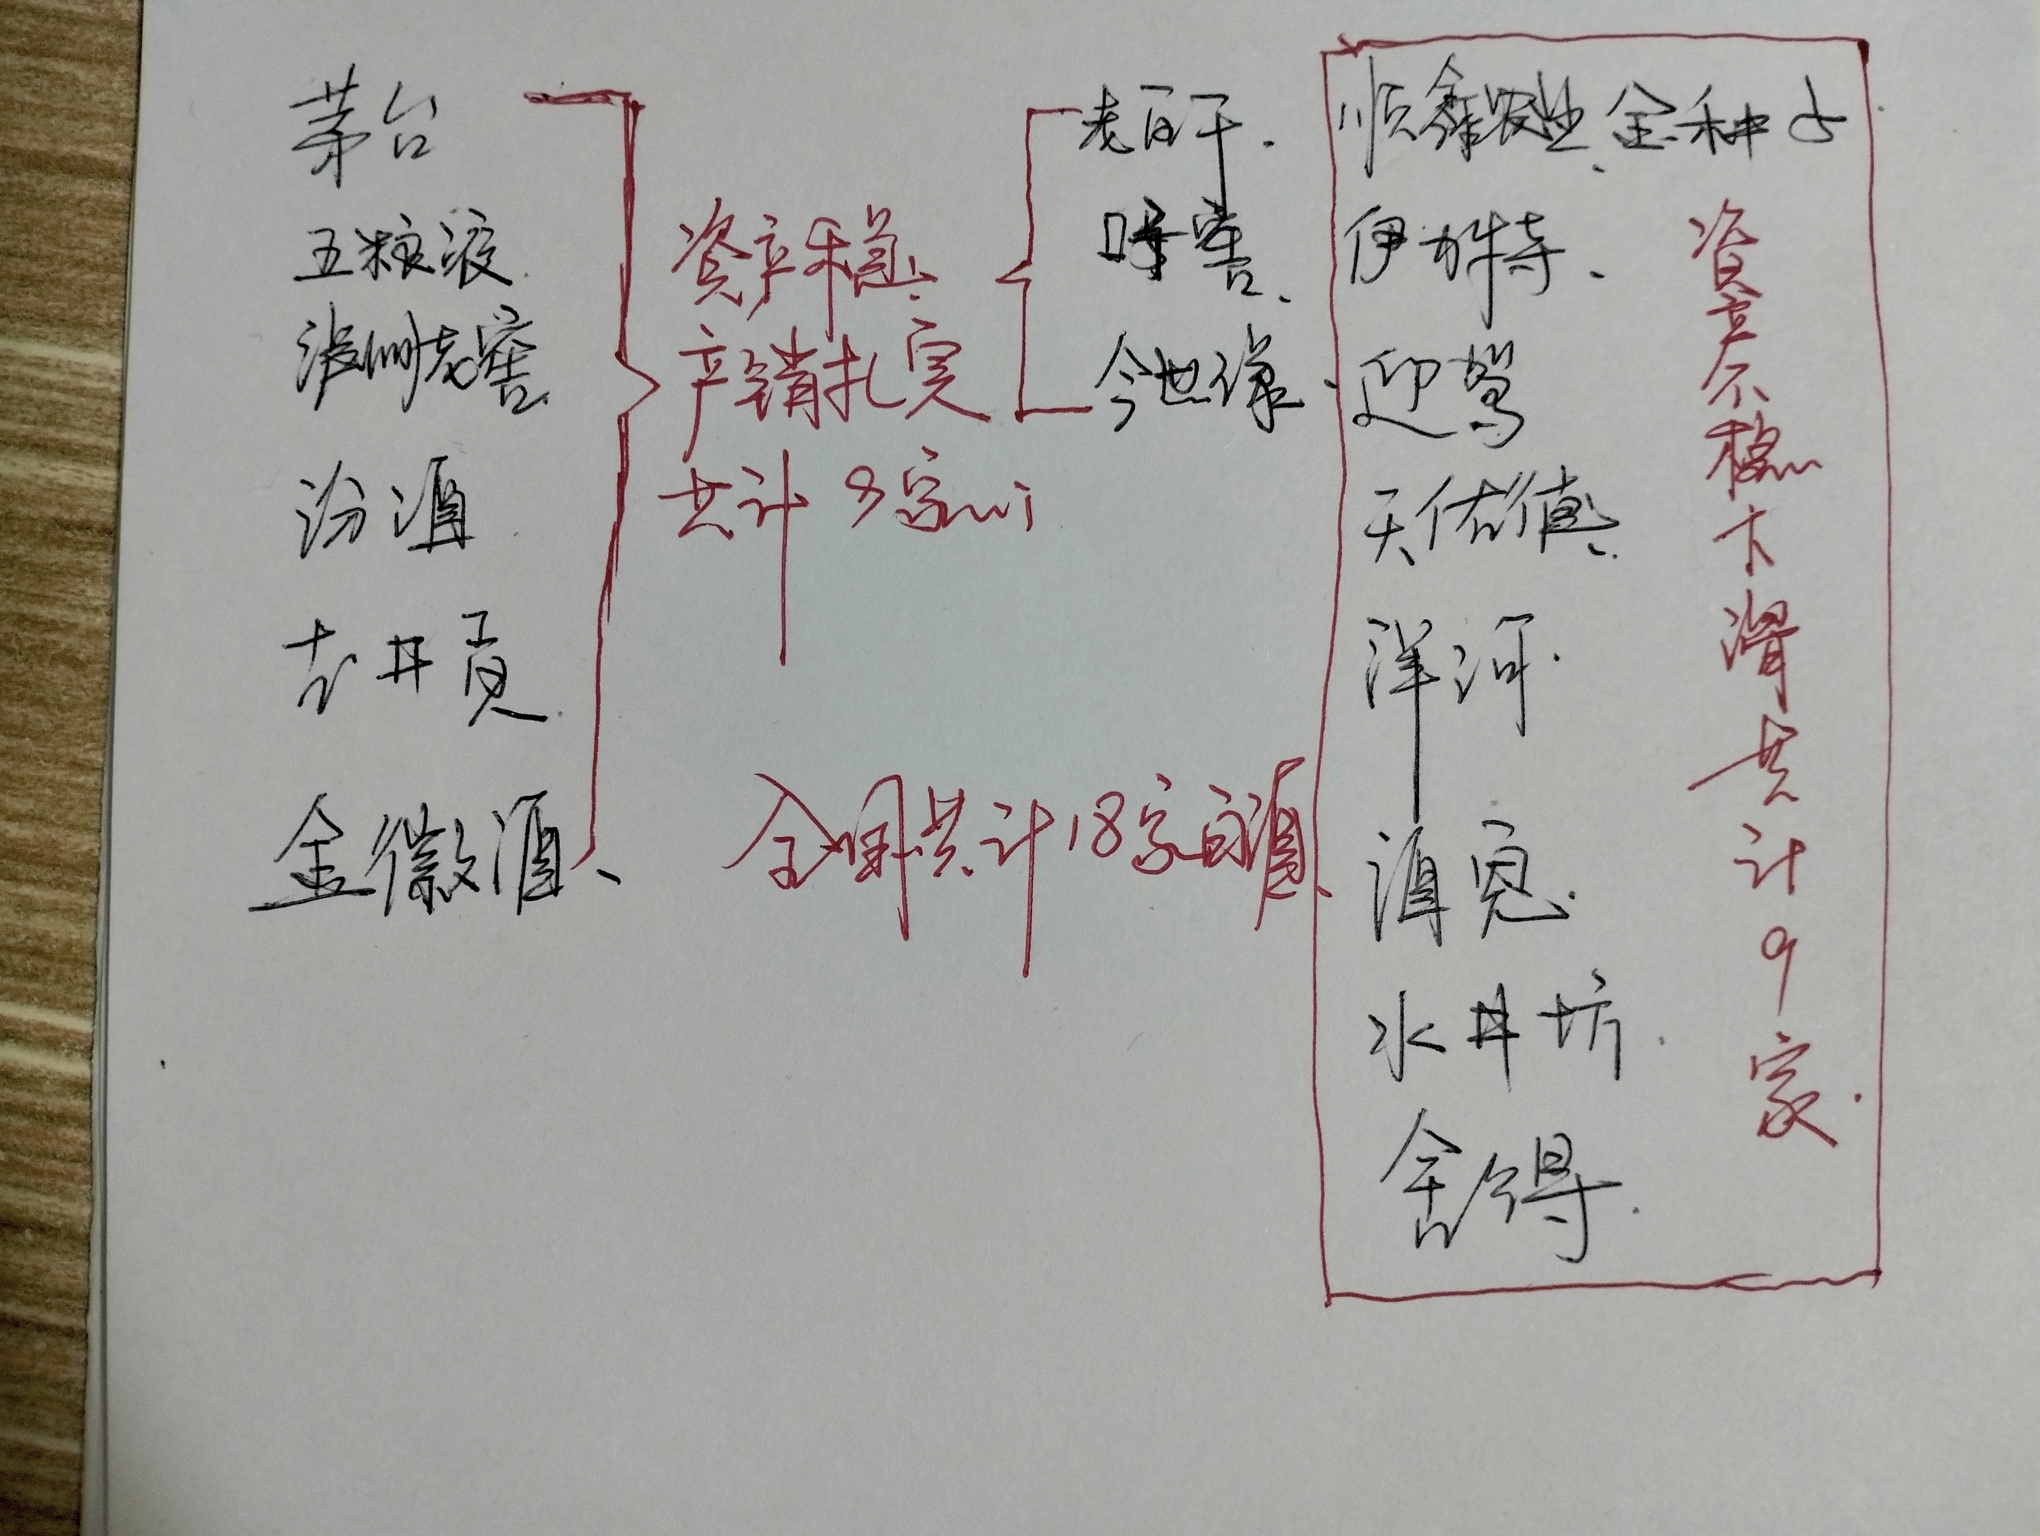 茅台
五粮液
泸州老窖
汾酒
古井贡
金徽酒、
资产稳、
产销扎实
共计9家
全国共计18家白酒、
老百干.
口子窖、
今世缘、
顺鑫农业、金种子
伊力特、
迎驾
天佑德、
洋河.
酒鬼.
水井坊.
舍得.
资产不稳
下滑共计9家.